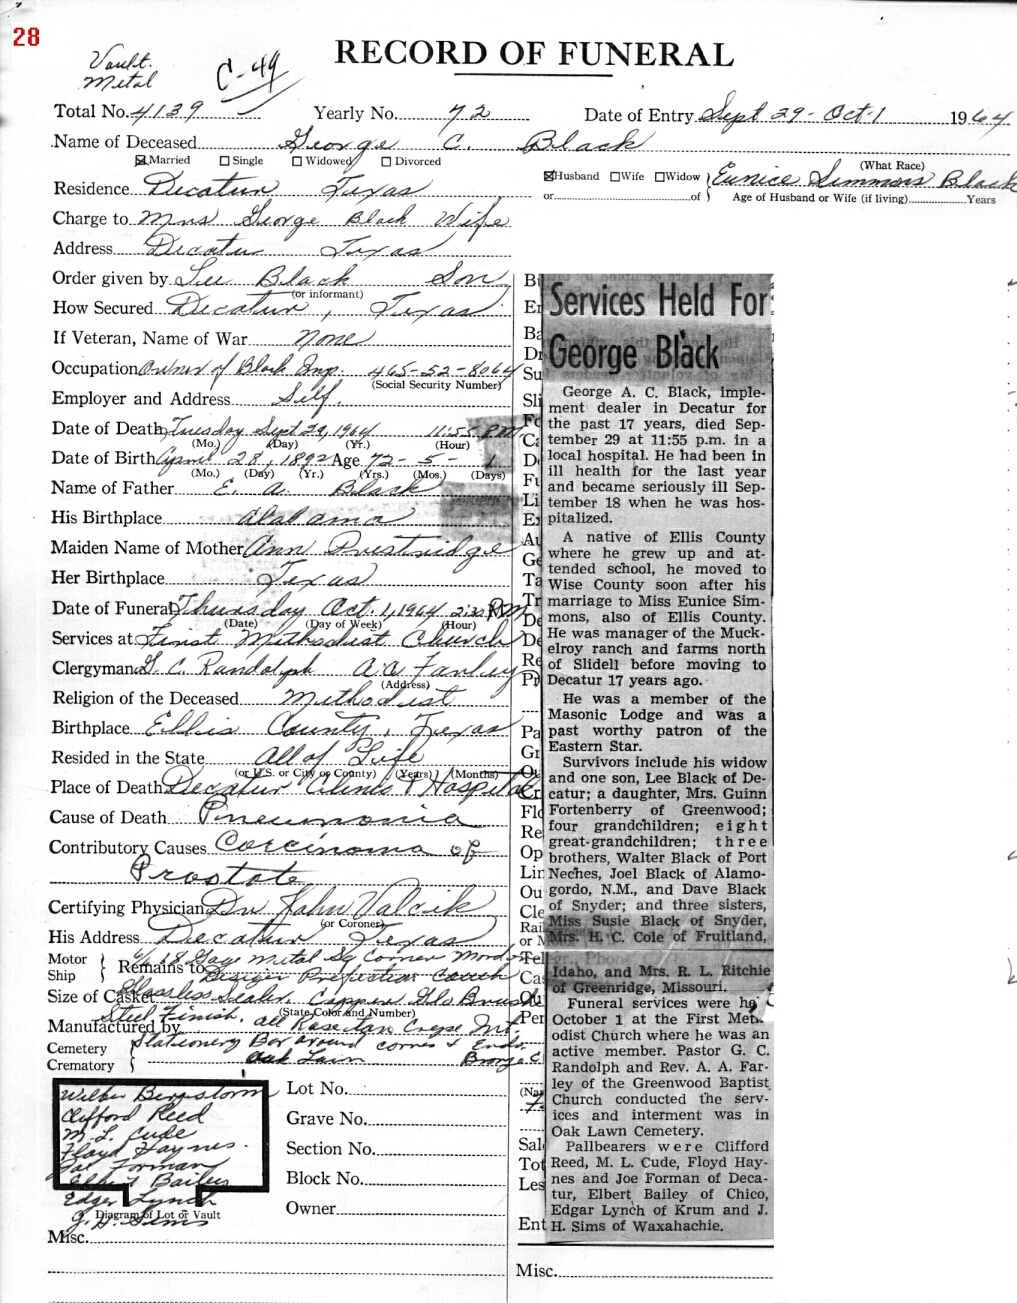 28
Vault.
Metal
C-49
RECORD OF FUNERAL
Total No. 4139 Yearly No. 72 Date of Entry Sept 29 - Oct. 1 1964
Name of Deceased George C. Black
☒ Married ☐ Single ☐ Widowed ☐ Divorced
(What Race)
Residence Decatur Texas ☒ Husband ☐ Wife ☐ Widow } Eunice Simmons Black
or of Age of Husband or Wife (if living) Years
Charge to Mrs George Black Wife
Address Decatur Texas
Order given by Lee Black Son
(or informant)
How Secured Decatur, Texas
If Veteran, Name of War none
Occupation Owner of Black Imp. 465-52-8064
(Social Security Number)
Employer and Address Self.
Date of Death Tuesday Sept 29, 1964 11:55 PM
(Mo.) (Day) (Yr.) (Hour)
Date of Birth April 28, 1892 Age 72 - 5 - 1
(Mo.) (Day) (Yr.) (Yrs.) (Mos.) (Days)
Name of Father E. A. Black
His Birthplace Alabama
Maiden Name of Mother Ann Prestridge
Her Birthplace Texas
Date of Funeral Thursday Oct. 1, 1964 2:30 PM
(Date) (Day of Week) (Hour)
Services at First Methodist Church
Clergyman G. C. Randolph A. A. Farley
(Address)
Religion of the Deceased Methodist
Birthplace Ellis County, Texas
Resided in the State All of Life
(or U.S. or City or County) (Years) (Months)
Place of Death Decatur Clinic & Hospital
Cause of Death Pneumonia
Contributory Causes Carcinoma of
Prostate
Certifying Physician Dr John Valcik
(or Coroner)
His Address Decatur Texas
Motor
Ship
Remains to 6/6 18 Gage Metal Sq Corner
Design Perfection Couch
Size of Casket Glassless Sealer. Copper
(State Color and Number)
Steel Finish. All Rose tan Crepe Int.
Manufactured by
Stationery Box around corners & Ends.
Cemetery
Crematory
Oak Lawn
Clifford Reed
M. L. Cude
Floyd Haynes.
Joe Forman
Elbert Bailey
Edger Lynch
J. H. Sims
Diagram of Lot or Vault
Lot No.
Grave No.
Section No.
Block No.
Owner
Misc.
Services Held For
George Black
George A. C. Black, imple-
ment dealer in Decatur for
the past 17 years, died Sep-
tember 29 at 11:55 p.m. in a
local hospital. He had been in
ill health for the last year
and became seriously ill Sep-
tember 18 when he was hos-
pitalized.
A native of Ellis County
where he grew up and at-
tended school, he moved to
Wise County soon after his
marriage to Miss Eunice Sim-
mons, also of Ellis County.
He was manager of the Muck-
elroy ranch and farms north
of Slidell before moving to
Decatur 17 years ago.
He was a member of the
Masonic Lodge and was a
past worthy patron of the
Eastern Star.
Survivors include his widow
and one son, Lee Black of De-
catur; a daughter, Mrs. Guinn
Fortenberry of Greenwood;
four grandchildren; eight
great-grandchildren; three
brothers, Walter Black of Port
Neches, Joel Black of Alamo-
gordo, N.M., and Dave Black
of Snyder; and three sisters,
Miss Susie Black of Snyder,
Mrs. H. C. Cole of Fruitland,
Idaho, and Mrs. R. L. Ritchie
of Greenridge, Missouri.
Funeral services were he
October 1 at the First Meth
odist Church where he was an
active member. Pastor G. C.
Randolph and Rev. A. A. Far-
ley of the Greenwood Baptist
Church conducted the serv-
ices and interment was in
Oak Lawn Cemetery.
Pallbearers were Clifford
Reed, M. L. Cude, Floyd Hay-
nes and Joe Forman of Deca-
tur, Elbert Bailey of Chico,
Edgar Lynch of Krum and J.
H. Sims of Waxahachie.
Misc.